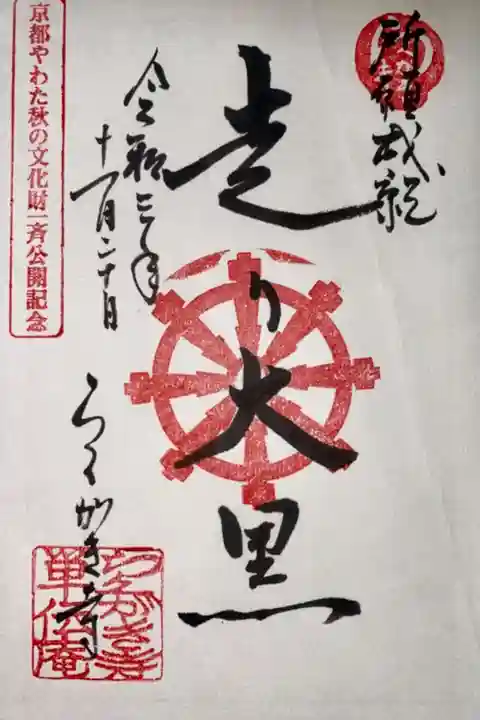 所願成就
走り大黒
令和三年
十一月二十日
らくがき寺
京都やわた秋の文化財一斉公開記念
らくがき寺
単伝庵